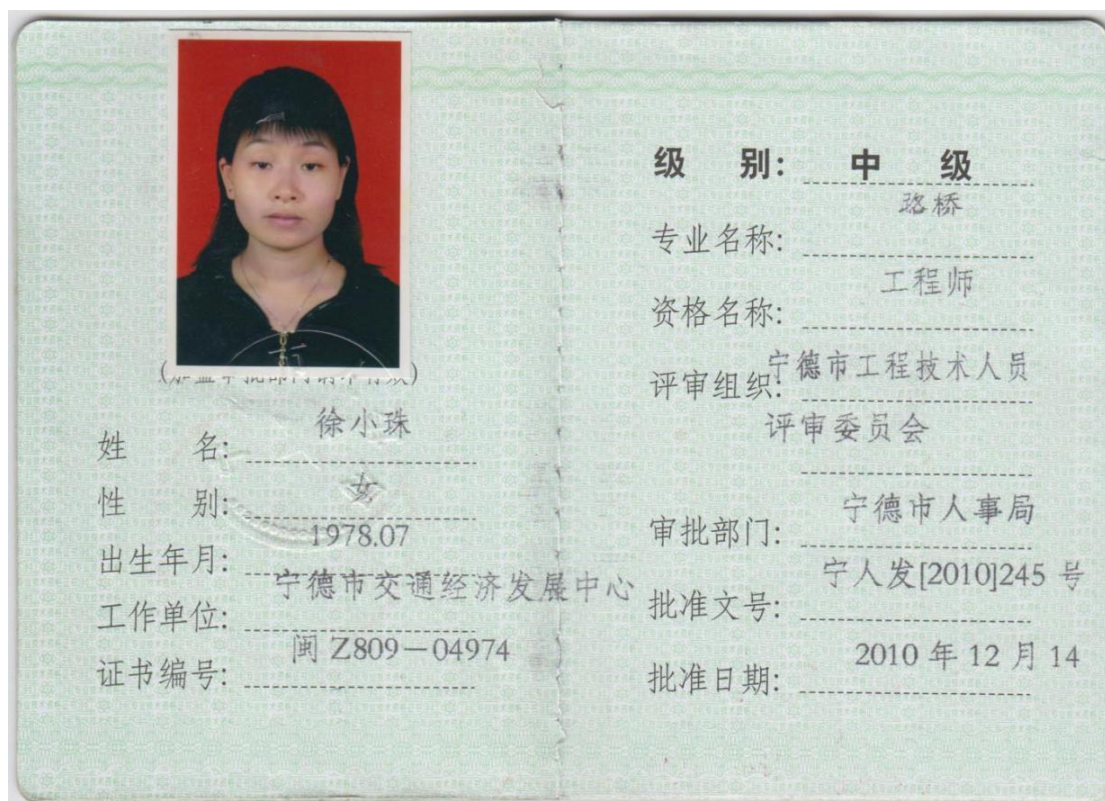 (加盖审批部门钢印有效)
姓 名: 徐小珠
性 别: 女
出生年月: 1978.07
工作单位: 宁德市交通经济发展中心
证书编号: 闽 Z809-04974
级 别: 中 级
专业名称: 路桥
资格名称: 工程师
评审组织: 宁德市工程技术人员
评审委员会
审批部门: 宁德市人事局
批准文号: 宁人发[2010]245 号
批准日期: 2010 年 12 月 14